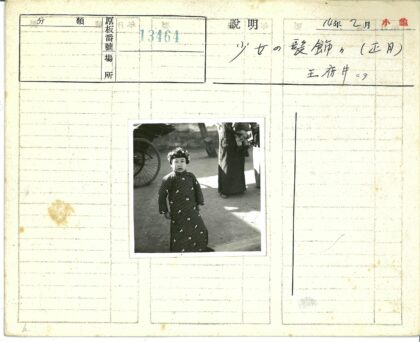 分類
原板番號
場所
13464
説明
16年2月 小鑑
少女の髪飾り(正月)
王府井ニテ